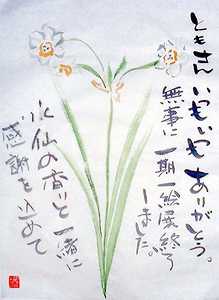 ともさん いつもいつも ありがとう。
無事に 一期一絵展終了
しました。
水仙の香りと一緒に
感謝を込めて